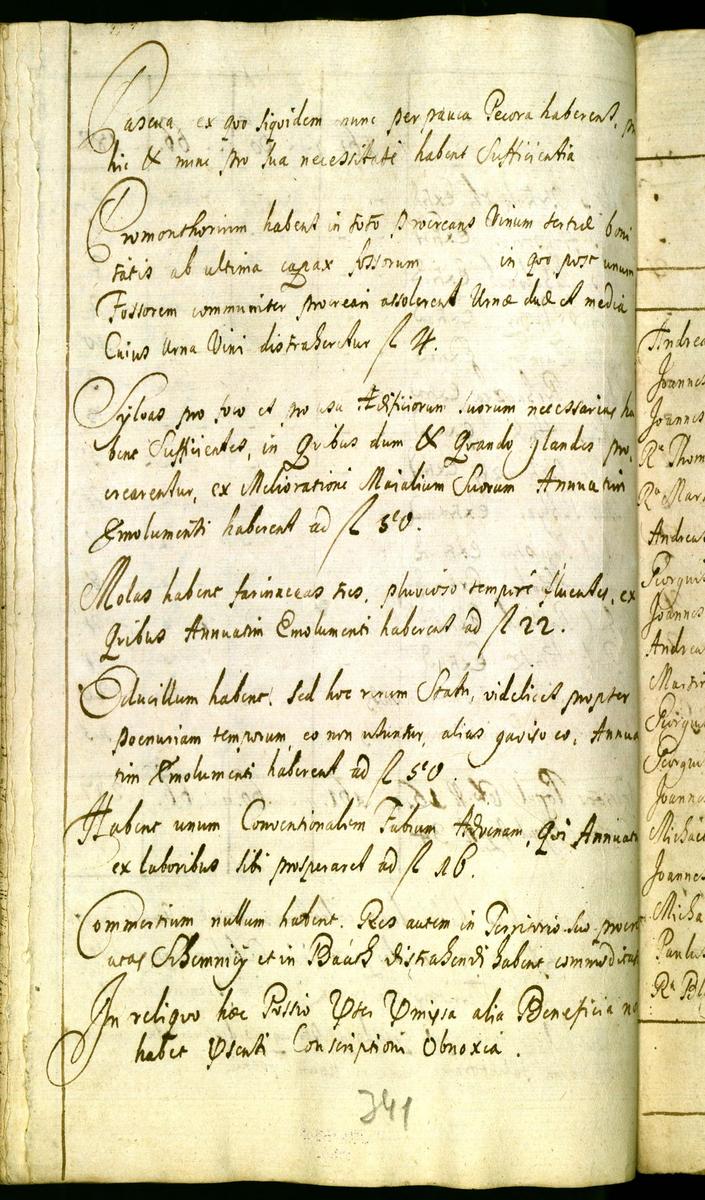 Pascua ex quo siquidem nunc per pauca Pecora haberent, pro
hic & nunc pro sua necessitate habent Sufficientia
Promonthorium habent in toto procreans Vinum tertiæ boni
tatis ab ultima capax fossorum in quo post unum
Fossorem communiter procreari assolerent Urnæ duæ et media
Cuius Urna Vini distraheretur fl 4.
Sylvas pro foco et pro usu Ædificiorum suorum necessarias ha
bent Sufficientes, in Quibus dum & Quando glandes pro
crearentur, ex Melioratione Maialium Suorum Annuatim
Emolumenti haberent ad fl 50.
Molas habent farinaceas tres, pluvioso tempore fluentes, ex
Quibus Annuatim Emolumenti haberent ad fl 22.
Educillum habent, sed hoc rerum Statu, videlicet propter
poenuriam temporum, eo non utuntur, alias gaviso eo, Annua
tim Emolumenti haberent ad fl 50.
Habent unum Conventionalem Fabrum Advenam, Qui Annuatim
ex laboribus sibi prosperaret ad fl 16.
Commertium nullum habent. Res autem in Territorio suo procre
atas Schemnicy et in Baách distrahendi habent commoditatem
In reliquo hæc Possio Præter Præmissa alia Beneficia non
habet Præsenti Conscriptioni Obnoxia.
341
Andrea
Joannes
Joannes
Ra Thom
Ra Mar
Andreas
Georgius
Joannes
Andrea
Martin
Georgius
Georgius
Joannes
Michael
Joannes
Micha
Paulus
Ra Bl